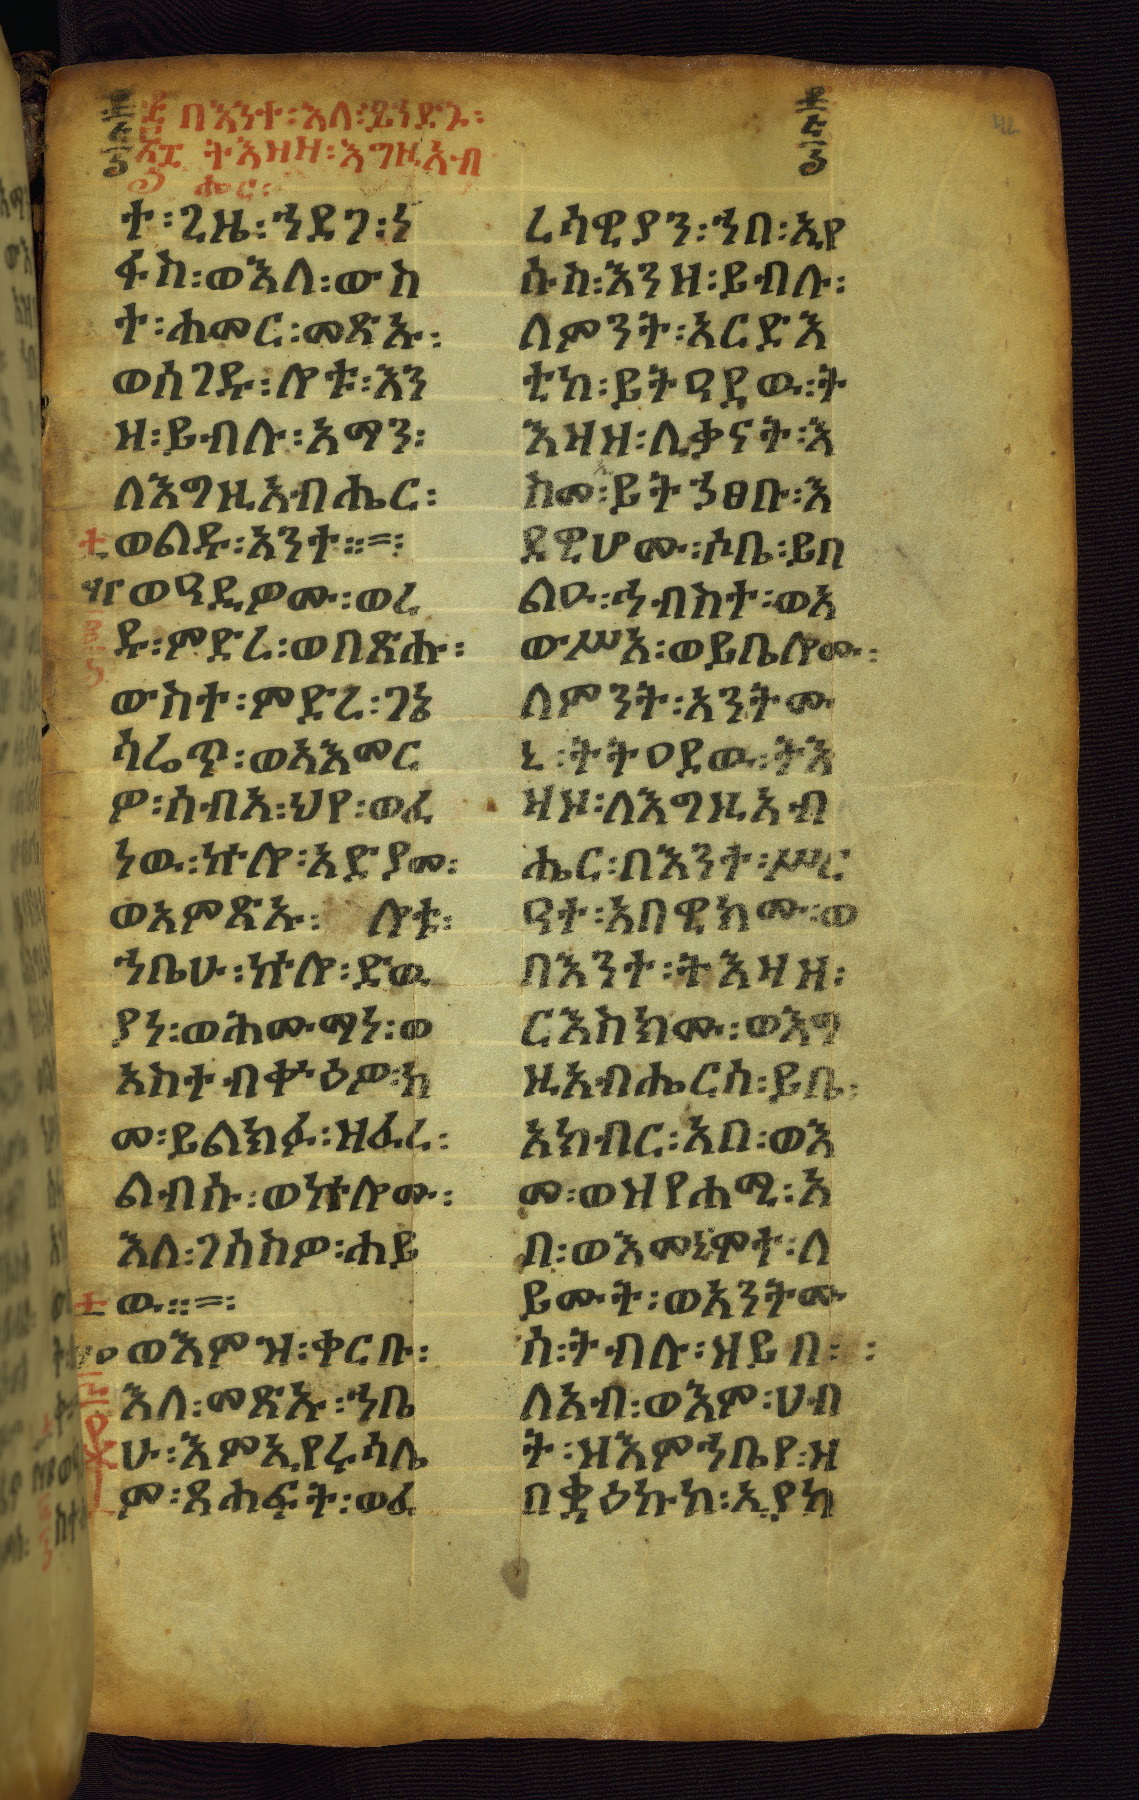 በእንተ፡እለ፡ይኀድጉ፡
ትእዛዘ፡እግዚአብ
ሔር፡
ተ፡ጊዜ፡ኀደገ፡ነ
ፋስ፡ወእለ፡ውስ
ተ፡ሐመር፡መጽኡ፡
ወሰገዱ፡ሎቱ፡እን
ዘ፡ይብሉ፡አማን፡
ለእግዚአብሔር፡
ወልዱ፡አንተ፡፡=፡
ወዓዲዎሙ፡ወረ
ዱ፡ምድረ፡ወበጽሑ፡
ውስተ፡ምድረ፡ገኔ
ሳሬጥ፡ወአእመር
ዎ፡ሰብአ፡ህየ፡ወፈ
ነዉ፡ኵሎ፡አድያመ፡
ወአምጽኡ፡ ሎቱ፡
ኀቤሁ፡ኵሎ፡ድዉ
ያነ፡ወሕሙማነ፡ወ
አስተብቍዕዎ፡ከ
መ፡ይልክፉ፡ዘፈረ፡
ልብሱ፡ወኵሎሙ፡
እለ፡ገሰስዎ፡ሐይ
ዉ፡፡=፡
ወእምዝ፡ቀርቡ፡
እለ፡መጽኡ፡ኀቤ
ሁ፡እምኢየሩሳሌ
ም፡ጸሐፍት፡ወፈ
ረሳዊያን፡ኀበ፡ኢየ
ሱስ፡እንዘ፡ይብሉ፡
ለምንት፡አርድእ
ቲከ፡ይትዓደዉ፡ት
እዛዘ፡ሊቃናት፡እ
ስመ፡ኢይትኀፀቡ፡እ
ደዊሆሙ፡ሶቤ፡ይበ
ልዑ፡ኅብስተ፡ወአ
ውሥአ፡ወይቤሎሙ፡
ለምንት፡አንትሙ
ኒ፡ትትዐደዉ፡ትእ
ዛዞ፡ለእግዚአብ
ሔር፡በእንተ፡ሥር
ዓት፡አበዊክሙ፡ወ
በእንተ፡ትእዛዘ፡
ርእስክሙ፡ወእግ
ዚአብሔርሰ፡ይቤ፡
አክብር፡አበ፡ወእ
መ፡ወዘየሐሚ፡አ
በ፡ወእመ፡ሞተ፡ለ
ይሙት፡ወአንትሙ
ሰ፡ትብሉ፡ዘይበ፡፡
ለአብ፡ወእም፡ሀብ
ት፡ዝእምኀቤየ፡ዘ
በቋዕኩከ፡ኢያከ